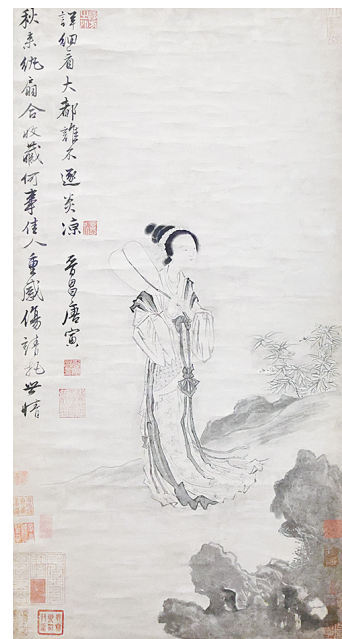 秋來紈扇合收藏何事佳人重感傷請托世情
詳細看大都誰不逐炎涼 晉昌唐寅